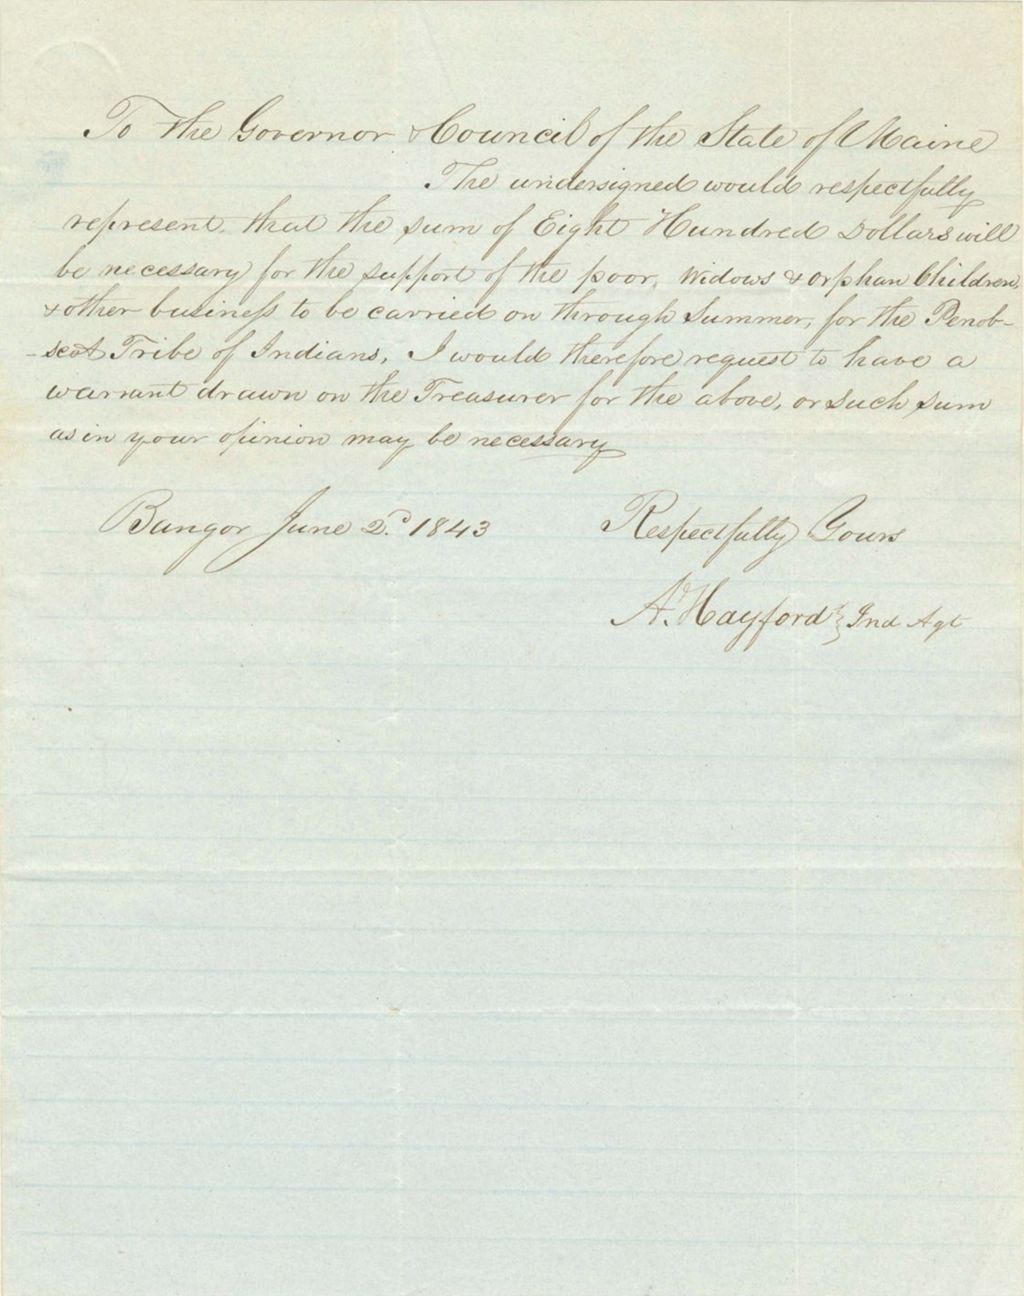 To the Governor & Council of the State of Maine
The undersigned would respectfully
represent that the sum of Eight Hundred Dollars will
be necessary for the support of the poor, Widows & orphan Children,
& other business to be carried on through Summer, for the Penob-
-scot Tribe of Indians, I would therefore request to have a
warrant drawn on the Treasurer for the above, or such sum
as in your opinion may be necessary
Bangor June 2d. 1843
Respectfully Yours
A. Hayford } Ind Agt